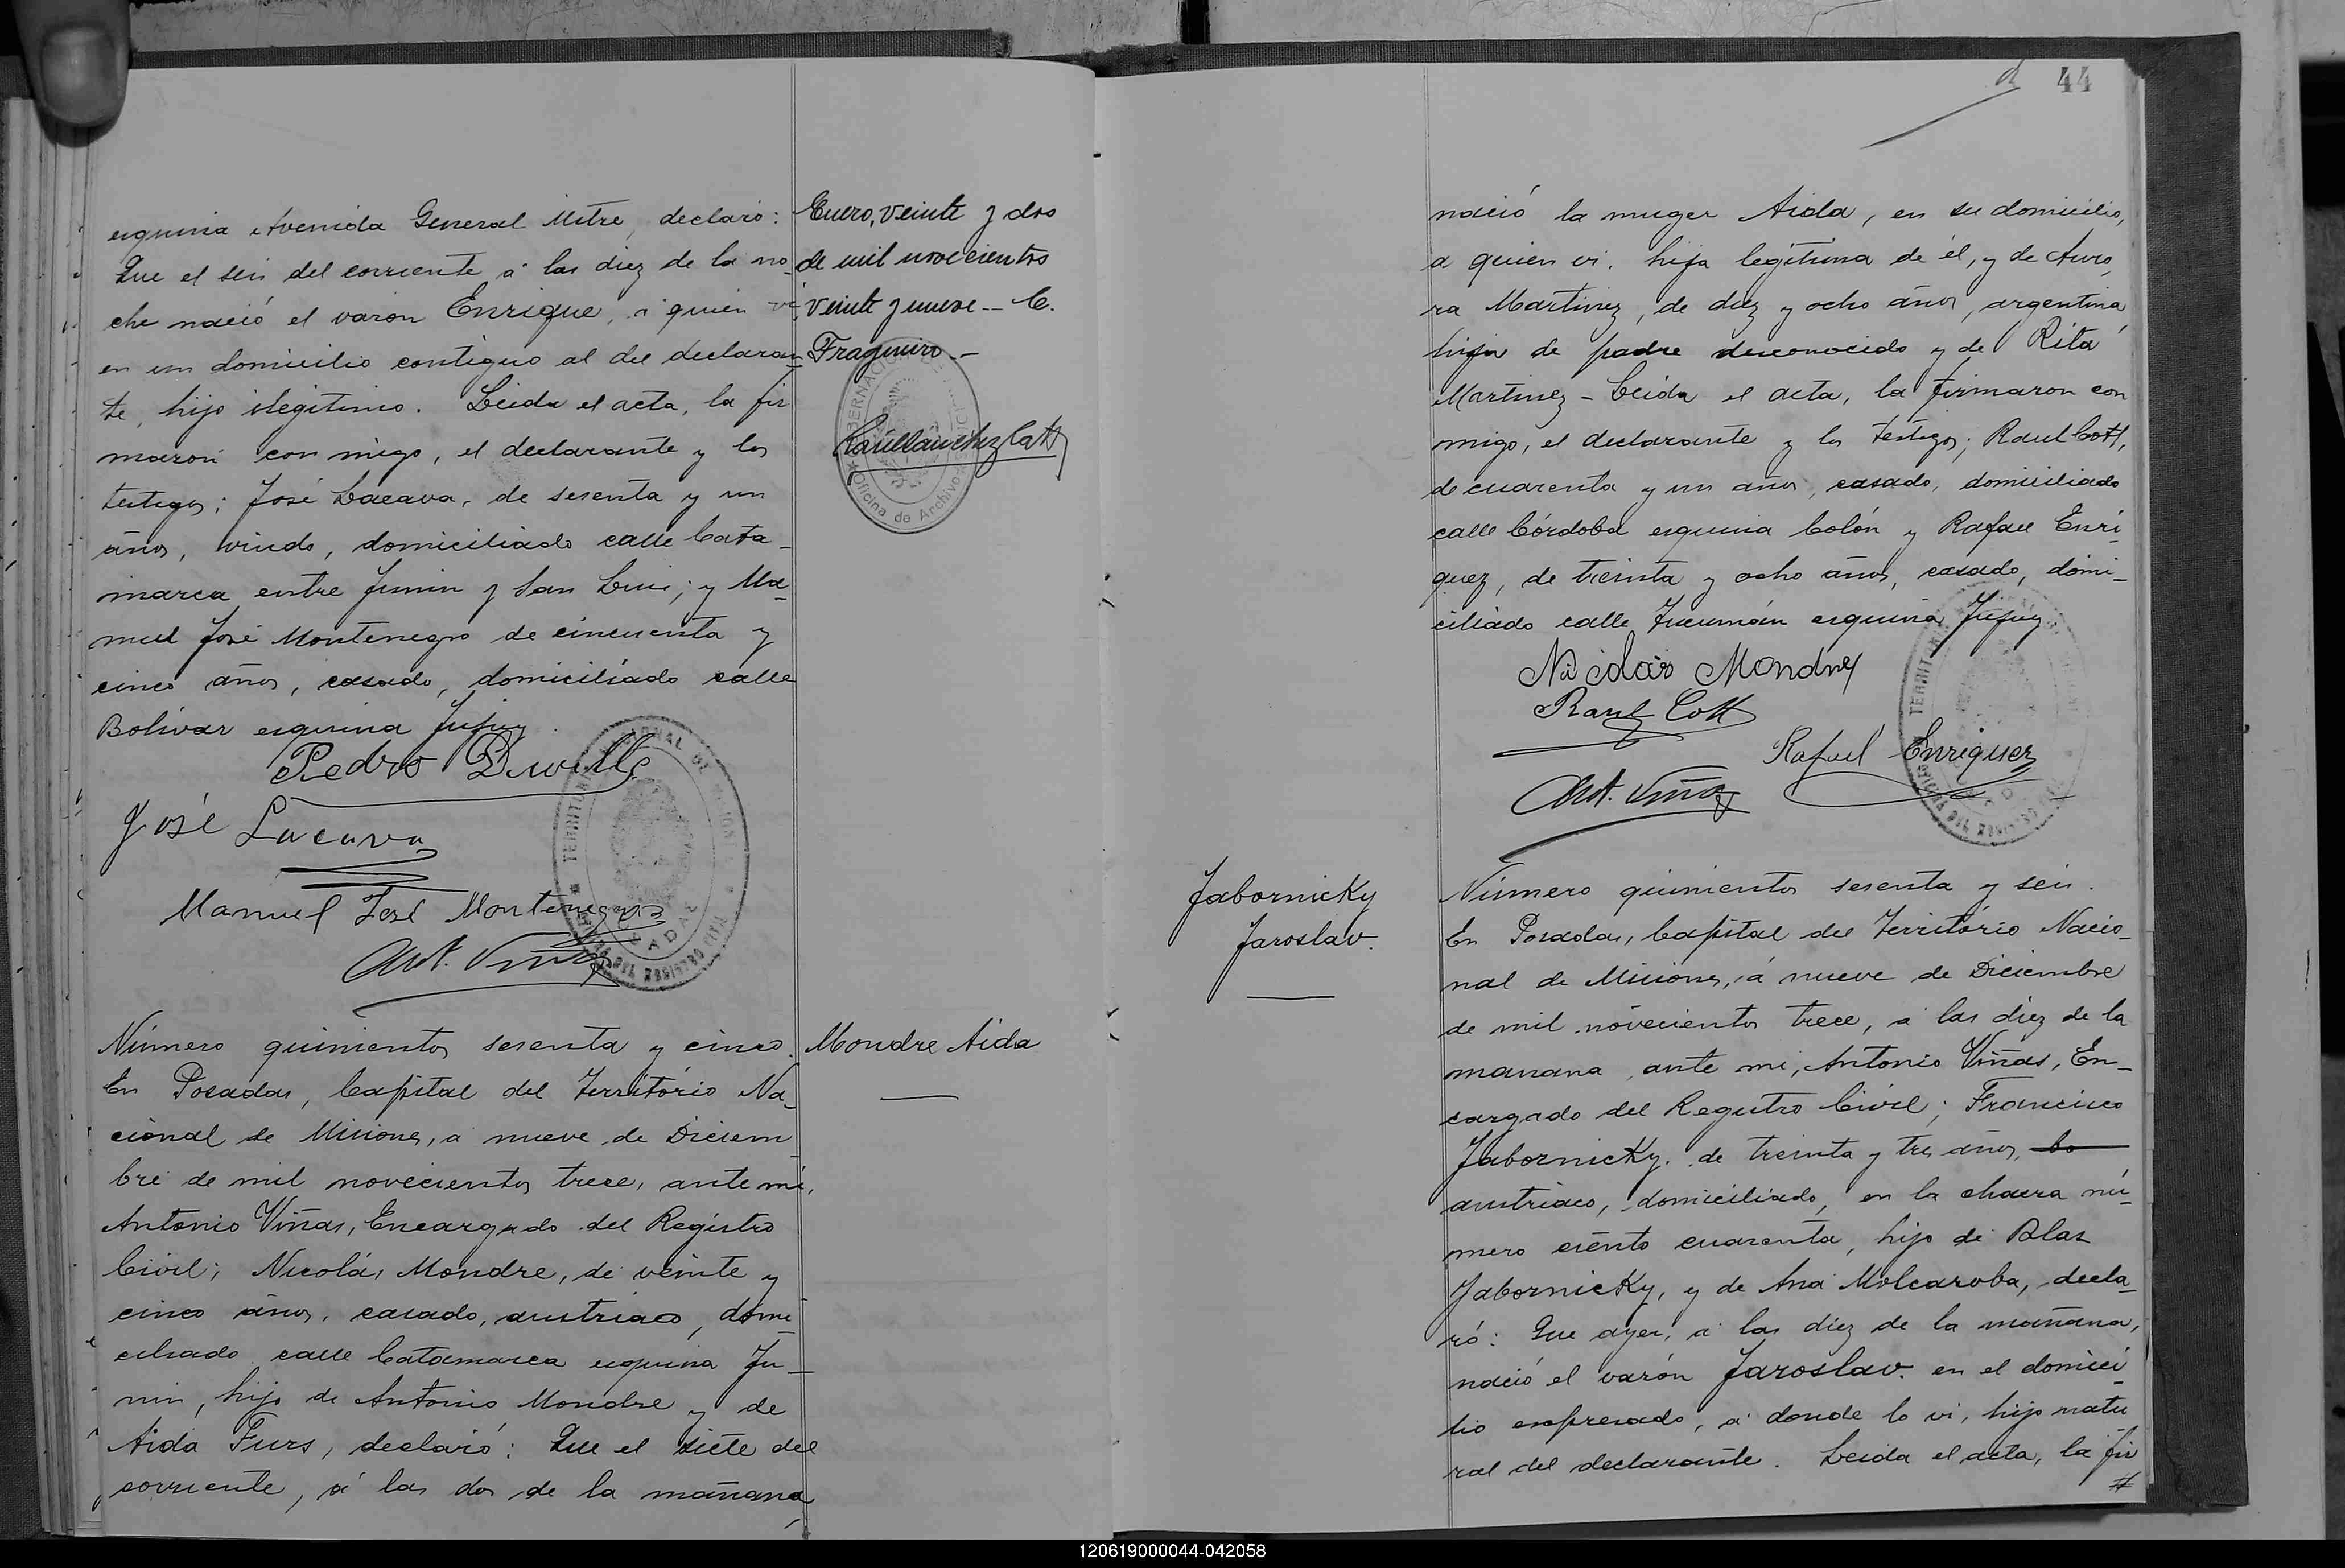 esquina Avenida General Mitre, declaró:
Que el seis del corriente á las diez de la no-
che nació el varon Enrique, á quien vi,
en un domicilio contiguo al del declaran-
te, hijo ilegitimo. Leida el acta, la fir
maron con migo, el declarante y los
testigos; José Lacava, de sesenta y un
años, viudo, domiciliado calle Cata-
marca entre Junin y San Luis; y Ma-
nuel José Montenegro de cincuenta y
cinco años, casado, domiciliado calle
Bolivar esquina Jujuy
Pedro
José Lacava
Manuel José Montenegro
Ant. Viñas
Número quinientos sesenta y cinco.
En Posadas, Capital del Território Na-
cional de Misiones, a nueve de Diciem
bre de mil novecientos trece, ante mi,
Antonio Viñas, Encargado del Registro
Civil; Nicolás Mondre, de veinte y
cinco años, casado, austriaco, domi-
ciliado calle Catamarca esquina Ju-
nin, hijo de Antonio Mondre y de
Aida Furs, declaró: Que el siete del
corriente, á las dos de la mañana,
Enero, veinte y dos
de mil novecientos
veinte y nueve -- C.
Fragueiro --
Raúl Sanchez Cott
Oficina de Archivo
Mondre Aida
44
nació la muger Aida, en su domicilio,
a quien vi. hija legitima de él, y de Auro,
ra Martinez, de diez y ocho años, argentina,
hija de padre desconocido y de Rita
Martinez - Leida el acta, la firmaron con
migo, el declarante y los testigos; Raul Cott,
de cuarenta y un años, casado, domiciliado
calle Córdoba esquina Colón y Rafael Enri-
quez, de treinta y ocho años, casado, domi-
ciliado calle Tucumán esquina Jujuy.
Nicolás Mondre
Raul Cott
Rafael Enriquez
Ant. Viñas
Jabornicky
Jaroslav.
Número quinientos sesenta y seis.
En Posadas, Capital del Território Nacio-
nal de Misiones, á nueve de Diciembre
de mil novecientos trece, á las diez de la
manana, ante mi, Antonio Viñas, En-
cargado del Registro Civil; Francisco
Jabornicky. de treinta y tres años,
austriaco, domiciliado, en la chacra nú-
mero ciento cuarenta, hijo de Blas
Jabornicky, y de Ana Molcaroba, decla-
ró: Que ayer, á las diez de la mañana,
nació el varón Jaroslav. en el domici-
lio expresado, á donde lo vi, hijo natu
ral del declarante. Leida el acta, la fir
#
120619000044-042058